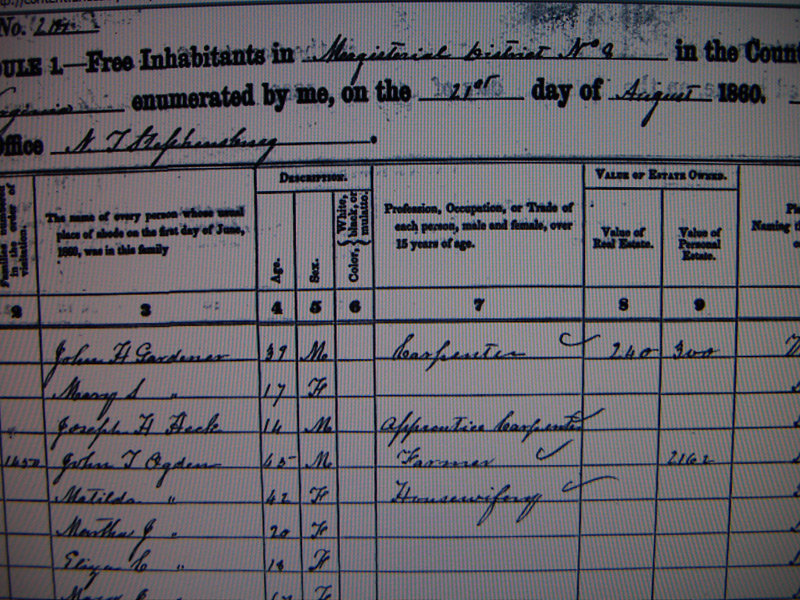 No.
ULE 1.—Free Inhabitants in Magisterial District No 8 in the Coun
rginia enumerated by me, on the 21st day of August 1860.
ffice N. T Stephensburg
The name of every person whose usual place of abode on the first day of June, 1860, was in this family
DESCRIPTION.
Age.
Sex.
Color, White, black, or mulatto.
Profession, Occupation, or Trade of each person, male and female, over 15 years of age.
VALUE OF ESTATE OWNED.
Value of Real Estate.
Value of Personal Estate.
Naming th
in the order of visitation.
2 3 4 5 6 7 8 9
John H Gardener 39 M Carpenter 240 300
Mary S " 17 F
Joseph H Heck 14 M Apprentice Carpenter
1650 John T Ogden 45 M Farmer 2162
Matilda " 42 F Housewifery
Martha J " 20 F
Eliza C " 18 F